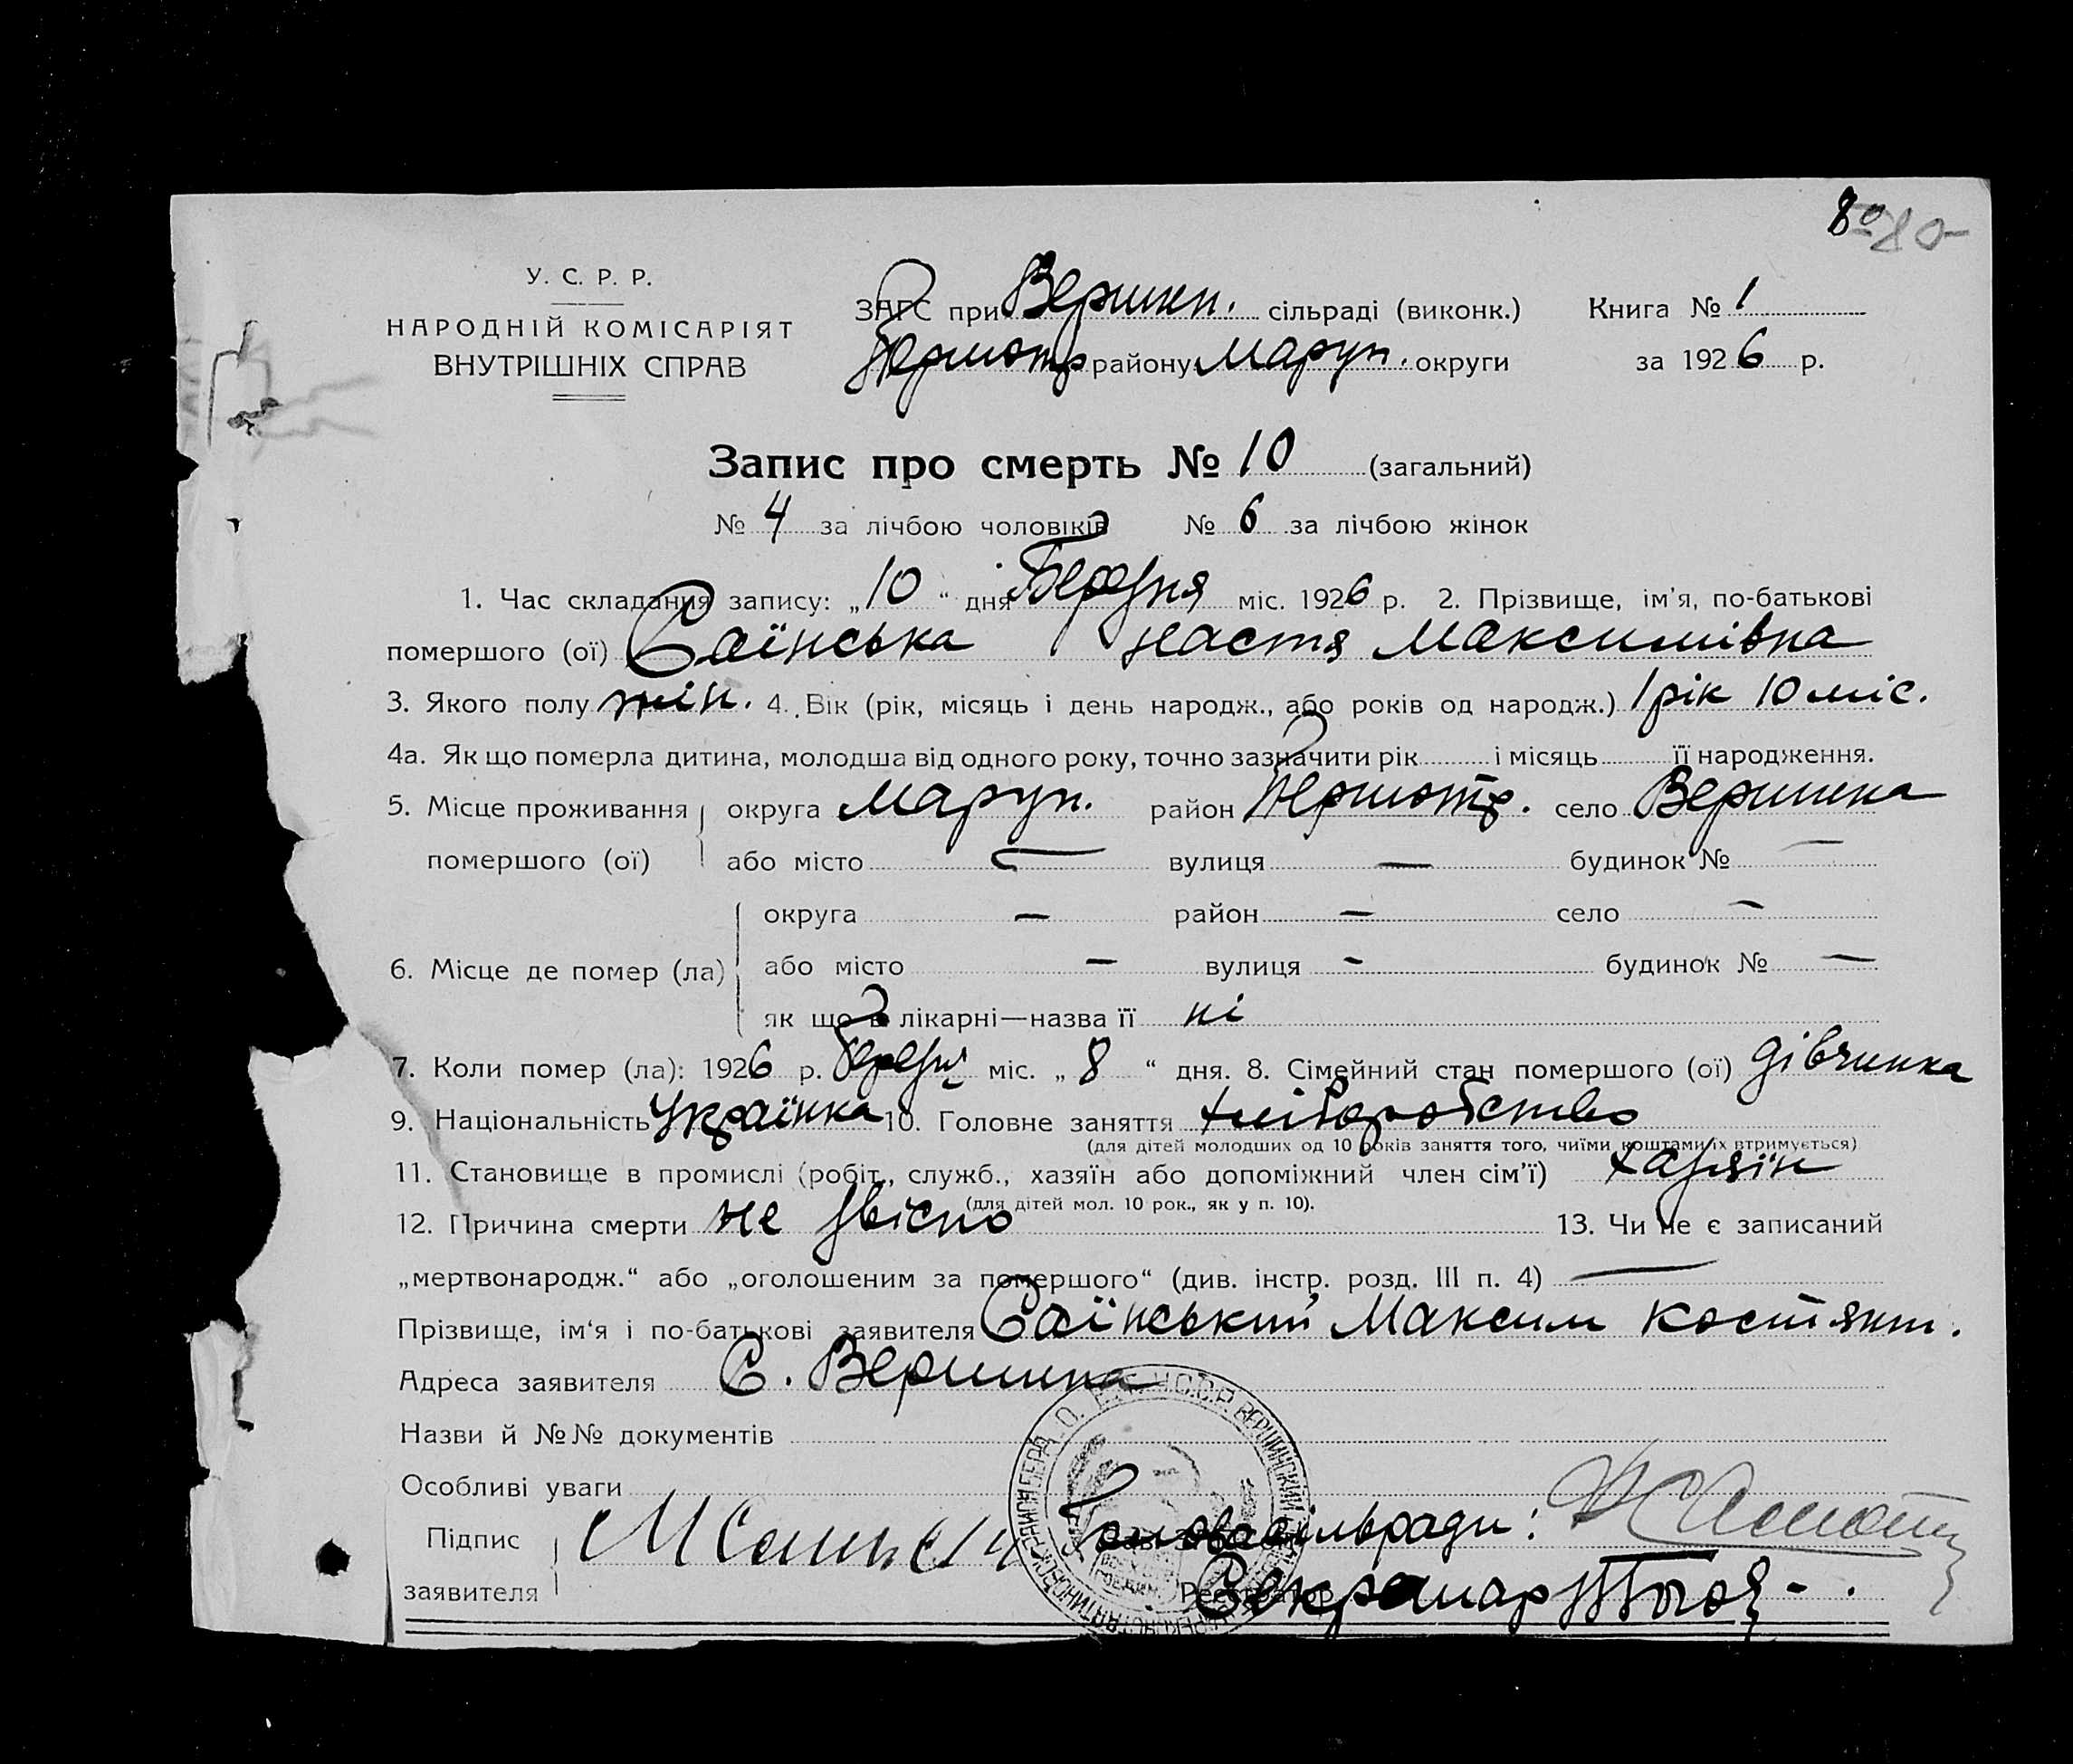 80 80
У. С. Р. Р.
НАРОДНІЙ КОМІСАРІЯТ
ВНУТРІШНІХ СПРАВ
ЗАГС при Вершин. сільраді (виконк.) Книга № 1
Першотр району Маруп. округи за 1926 р.
Запис про смерть № 10 (загальний)
№ 4 за лічбою чоловіків № 6 за лічбою жінок
1. Час складання запису: „10“ дня Березня міс. 1926 р. 2. Прізвище, ім'я, по-батькові
помершого (ої) Саїнська Настя Максимівна
3. Якого полу жін. 4. Вік (рік, місяць і день народж., або років од народж.) 1 рік 10 міс.
4а. Як що померла дитина, молодша від одного року, точно зазначити рік і місяць її народження.
5. Місце проживання округа Маруп. район Першотр. село Вершина
помершого (ої) або місто — вулиця — будинок № —
округа — район — село —
6. Місце де помер (ла) або місто — вулиця - будинок № —
як що в лікарні—назва її ні
7. Коли помер (ла): 1926 р. Березня міс. „8“ дня. 8. Сімейний стан помершого (ої) дівчинка
9. Національність Українка 10. Головне заняття хліборобство
(для дітей молодших од 10 років заняття того, чиїми коштами їх втримується)
11. Становище в промислі (робіт., служб., хазяїн або допоміжний член сім'ї) хазяїн
(для дітей мол. 10 рок., як у п. 10).
12. Причина смерти не звісно 13. Чи не є записаний
„мертвонародж.“ або „оголошеним за помершого“ (див. інстр. розд. III п. 4) —
Прізвище, ім'я і по-батькові заявителя Саїнський Максим Костянт.
Адреса заявителя С. Вершина
Назви й №№ документів
Особливі уваги
Підпис Голова сільради:
заявителя Реєстратор Секретар